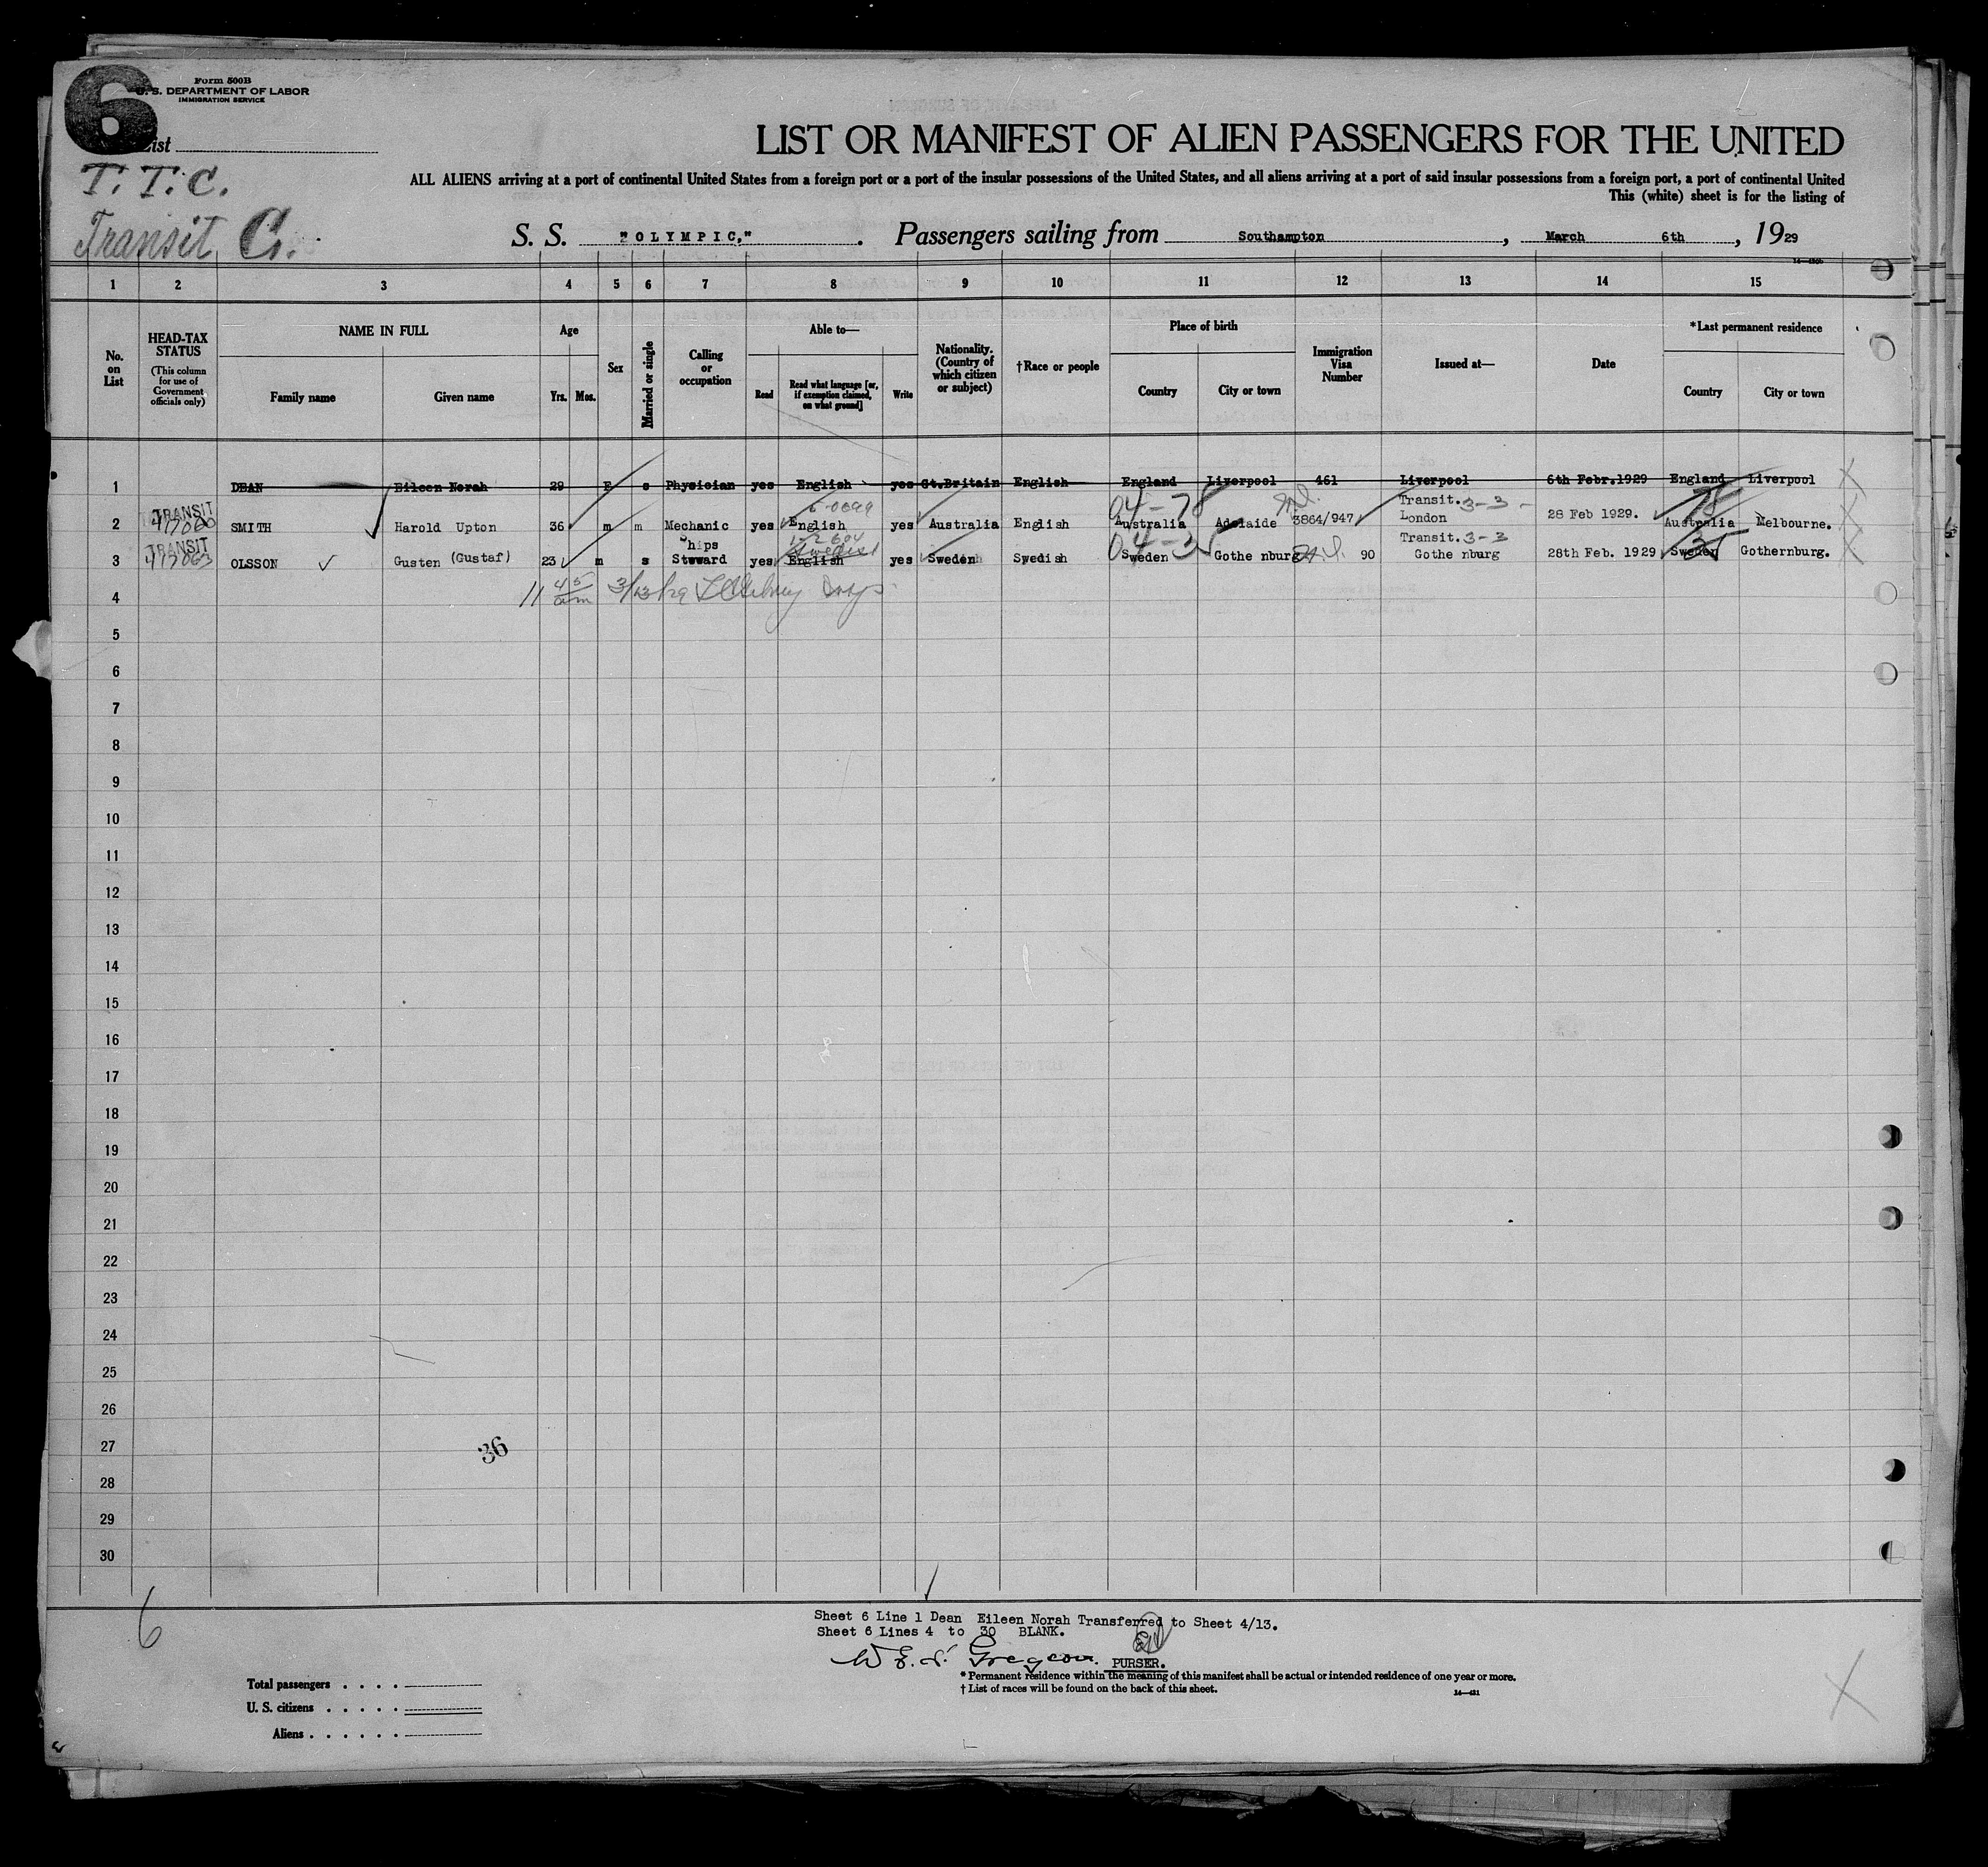 6
Form 500B
U. S. DEPARTMENT OF LABOR
IMMIGRATION SERVICE
List
T. T. C.
Transit C.
LIST OR MANIFEST OF ALIEN PASSENGERS FOR THE UNITED
ALL ALIENS arriving at a port of continental United States from a foreign port or a port of the insular possessions of the United States, and all aliens arriving at a port of said insular possessions from a foreign port, a port of continental United
This (white) sheet is for the listing of
S. S. "OLYMPIC," . Passengers sailing from Southampton , March 6th , 1929
1 2 3 4 5 6 7 8 9 10 11 12 13 14 15
No. on List
HEAD-TAX STATUS (This column for use of Government officials only)
NAME IN FULL Family name Given name
Age Yrs. Mos.
Sex
Married or single
Calling or occupation
Able to— Read Read what language [or, if exemption claimed, on what ground] Write
Nationality. (Country of which citizen or subject)
†Race or people
Place of birth Country City or town
Immigration Visa Number
Issued at—
Date
*Last permanent residence Country City or town
1 DEAN Eileen Norah 29 F s Physician yes English yes Gt.Britain English England Liverpool 461 Liverpool 6th Febr.1929 England Liverpool
04-78 Transit. 3-3-
2 TRANSIT SMITH Harold Upton 36 m m Mechanic yes English yes Australia English Australia Adelaide 3864/947 London 28 Feb 1929. Australia Melbourne.
Ships Swedish Transit. 3-3
3 TRANSIT OLSSON Gusten (Gustaf) 23 m s Steward yes English yes Sweden Swedish Sweden Gothe nburg 90 Gothe nburg 28th Feb. 1929 Sweden Gothernburg.
4 11 45 am 3/13/29
5
6
7
8
9
10
11
12
13
14
15
16
17
18
19
20
21
22
23
24
25
26
27
36
28
29
30
6
Sheet 6 Line 1 Dean Eileen Norah Transferred to Sheet 4/13.
Sheet 6 Lines 4 to 30 BLANK.
PURSER.
* Permanent residence within the meaning of this manifest shall be actual or intended residence of one year or more.
† List of races will be found on the back of this sheet.
14—431
Total passengers . . . .
U. S. citizens . . . . .
Aliens . . . . . .